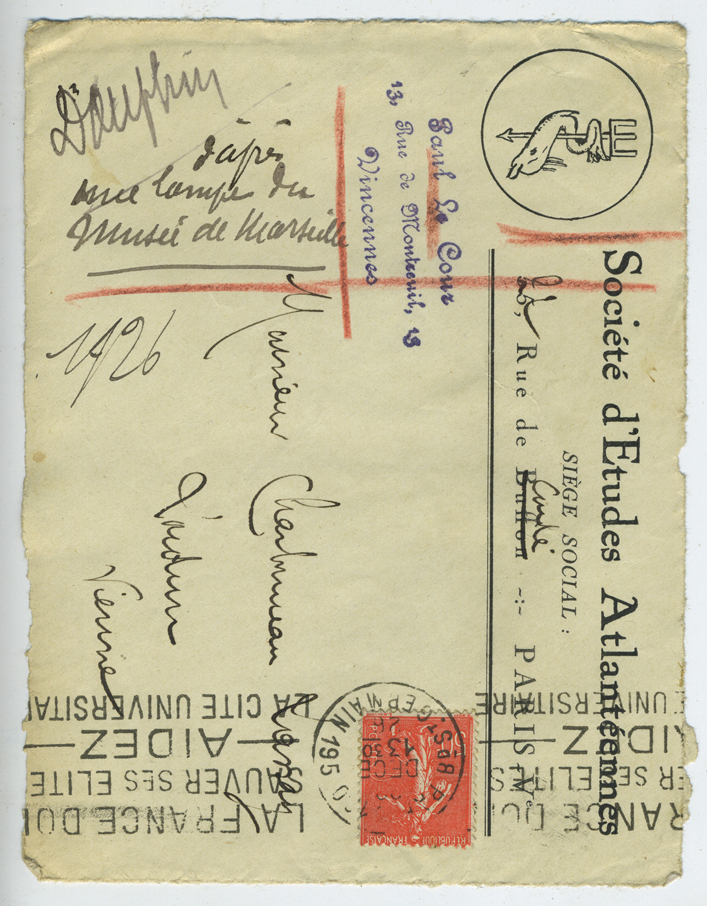 Dauphin
d'après
une lampe du
Musée de Marseille
1926
Paul Le Cour
13, Rue de Montreuil, 13
Vincennes
Société d'Etudes Atlantéennes
SIÈGE SOCIAL :
Rue de Buffon -:- PARIS-Ve
Condé
Monsieur Charbonneau
Loudun
Vienne
LA FRANCE DOI
SAUVER SES ELITE
AIDEZ
LA CITE UNIVERSITAI
RANCE DOI
ER SES ELITES
AIDEZ
E UNIVERSITAIRE
ST GERMAIN
13
DECE
REPUBLIQUE FRANÇAISE